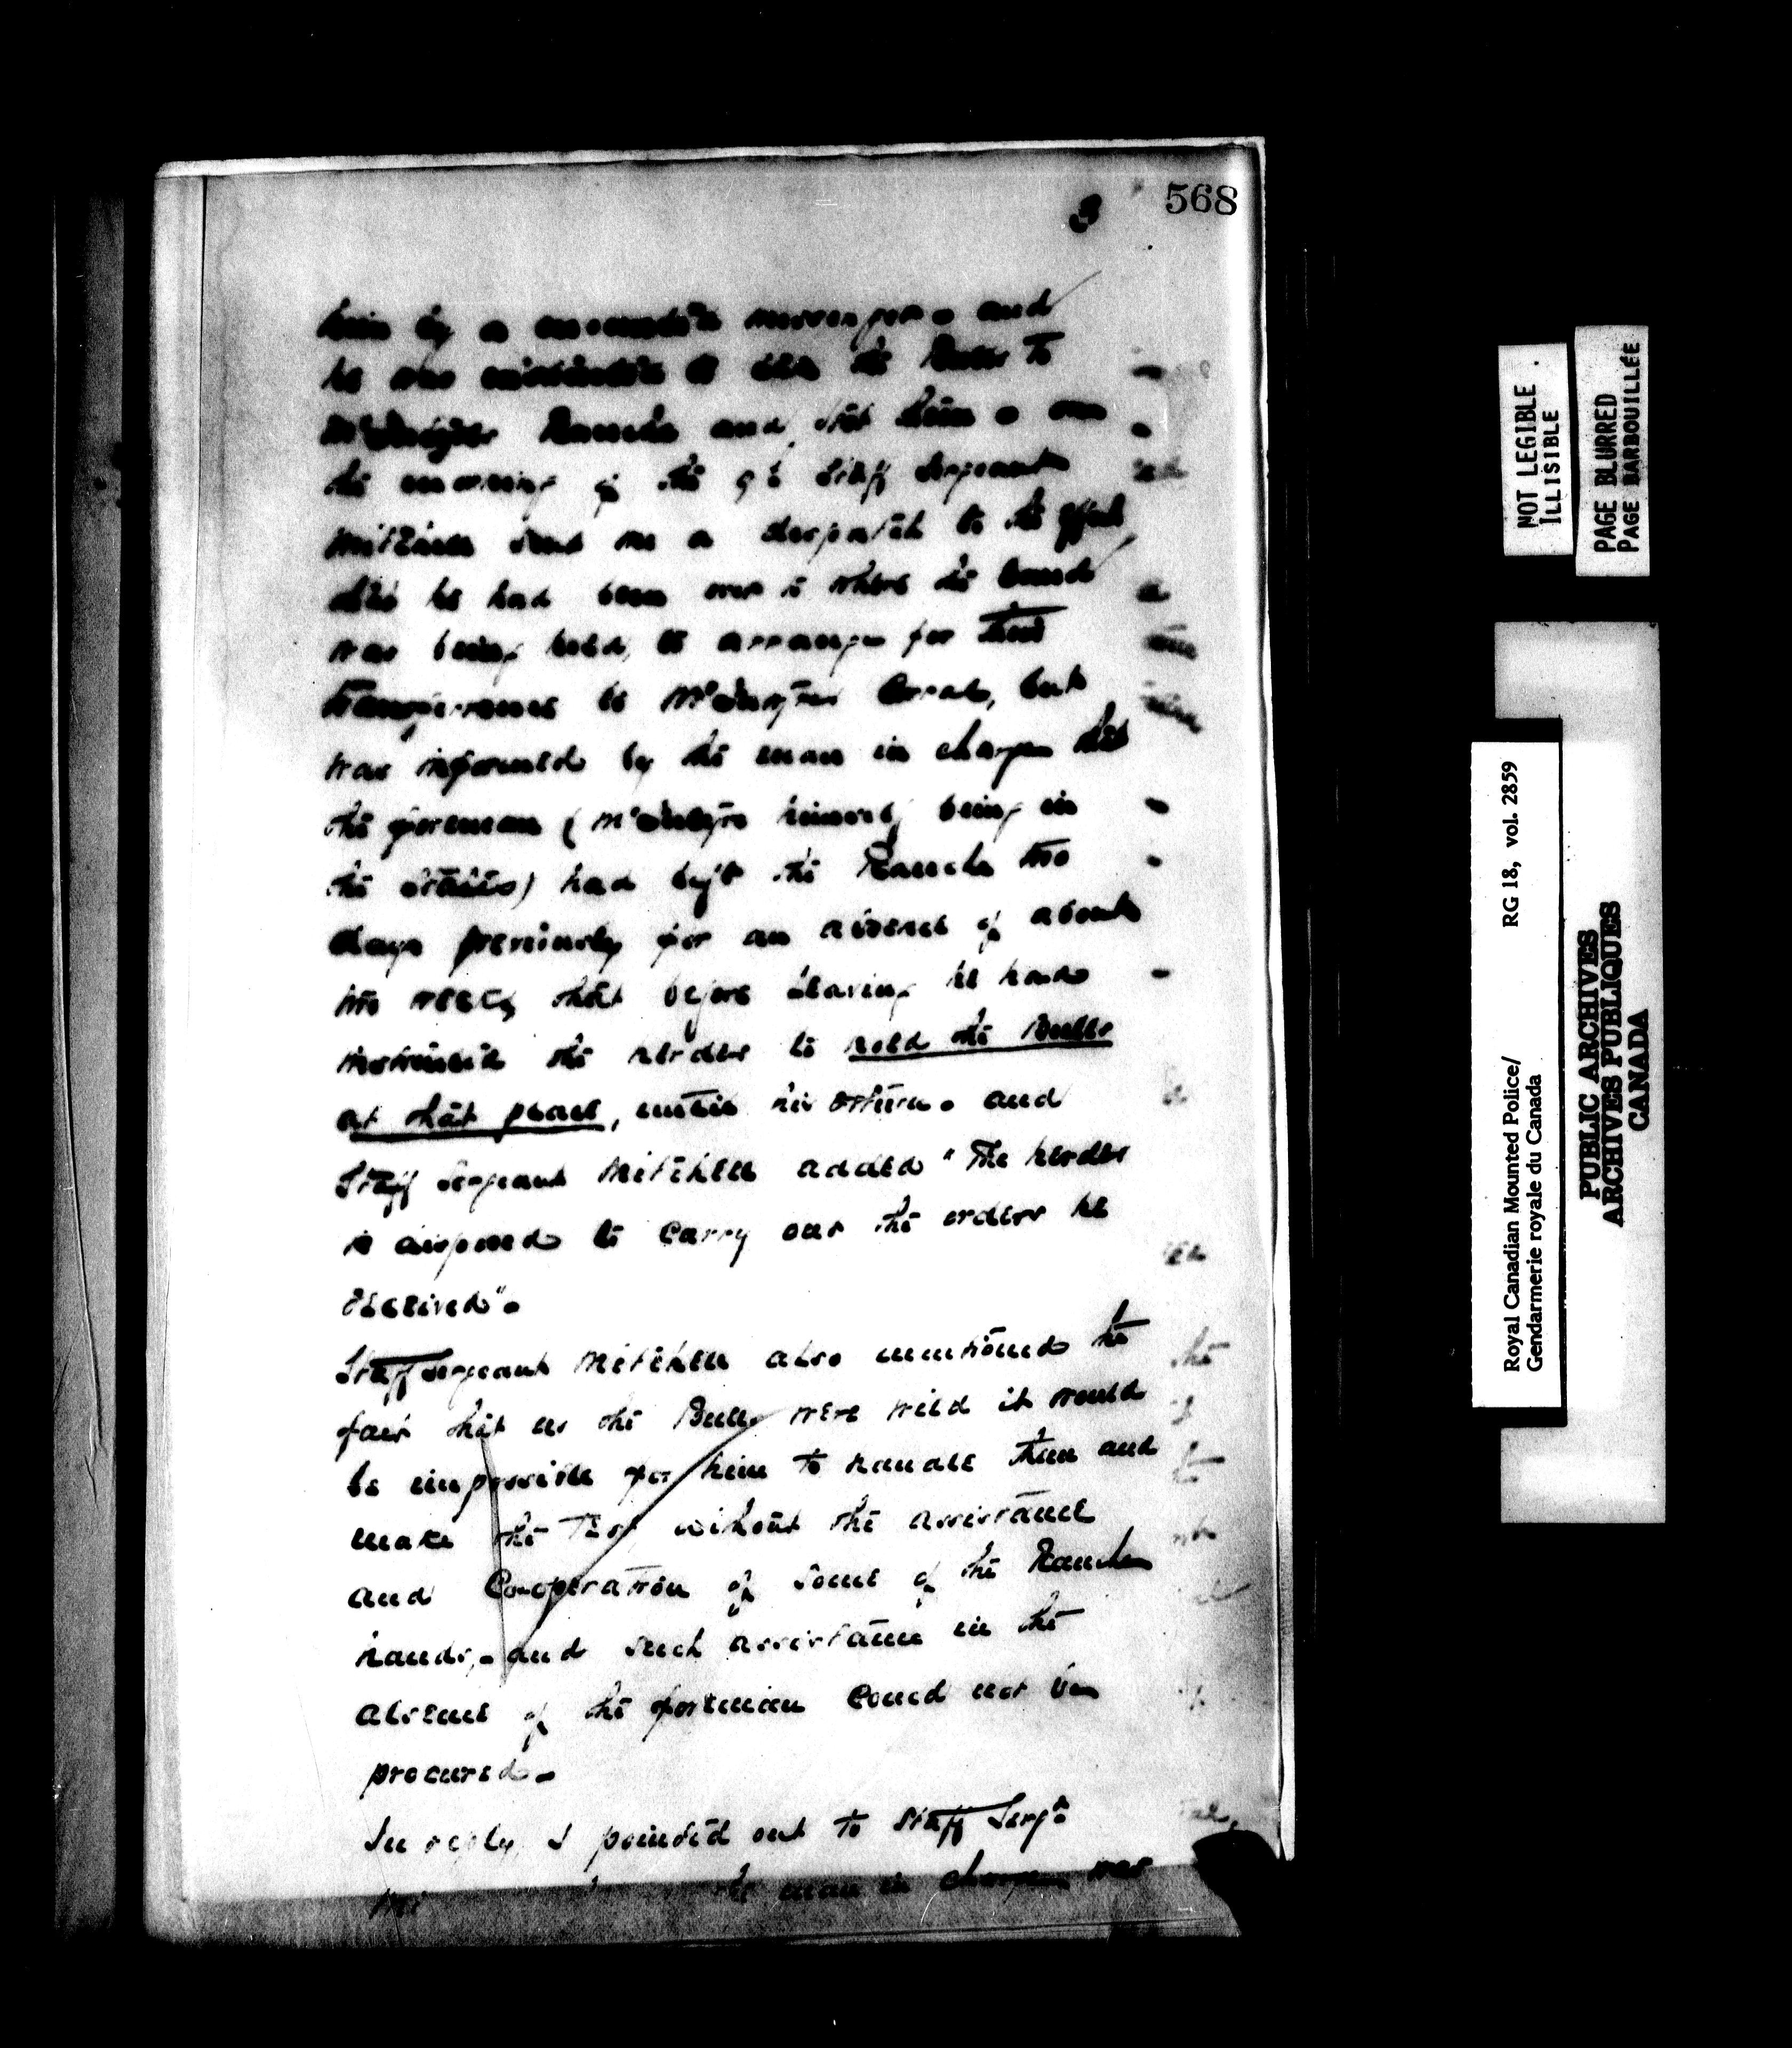 568
3
him by a mounted messenger - and
he was instructed to take the Bulls to
McIntyres Ranche and test them - on
the morning of the 9th Staff Sergeant
Mitchell sent me a despatch to the effect
that he had been over to where the band
was being held, to arrange for their
to McIntyres Corral, but
was informed by the man in charge that
the foreman (McIntyre himself being in
the States) had left the Ranche two
days previously for an absence of about
two weeks, that before leaving he had
instructed the herder to hold the Bulls
at that place, until his return. and
Staff Sergeant Mitchell added "The herder
is disposed to carry out the orders he
received".
Staff Sergeant Mitchell also mentioned the
fact that as the Bulls were wild it would
be impossible for him to handle them and
make the Test without the assistance
and Co-operation of some of the Ranche
hands, - and such assistance in the
absence of the foreman could not be
procured -
In reply I pointed out to Staff Sergt
the man in charge was
NOT LEGIBLE
ILLISIBLE
PAGE BLURRED
PAGE BARBOUILLÉE
Royal Canadian Mounted Police/ RG 18, vol. 2859
Gendarmerie royale du Canada
PUBLIC ARCHIVES
ARCHIVES PUBLIQUES
CANADA